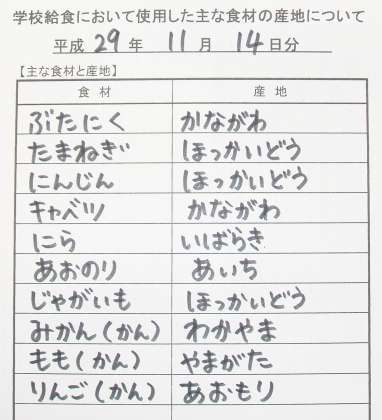 学校給食において使用した主な食材の産地について
平成 29 年 11 月 14 日分
【主な食材と産地】
食材 産地
ぶたにく かながわ
たまねぎ ほっかいどう
にんじん ほっかいどう
キャベツ かながわ
にら いばらき
あおのり あいち
じゃがいも ほっかいどう
みかん(かん) わかやま
もも(かん) やまがた
りんご(かん) あおもり